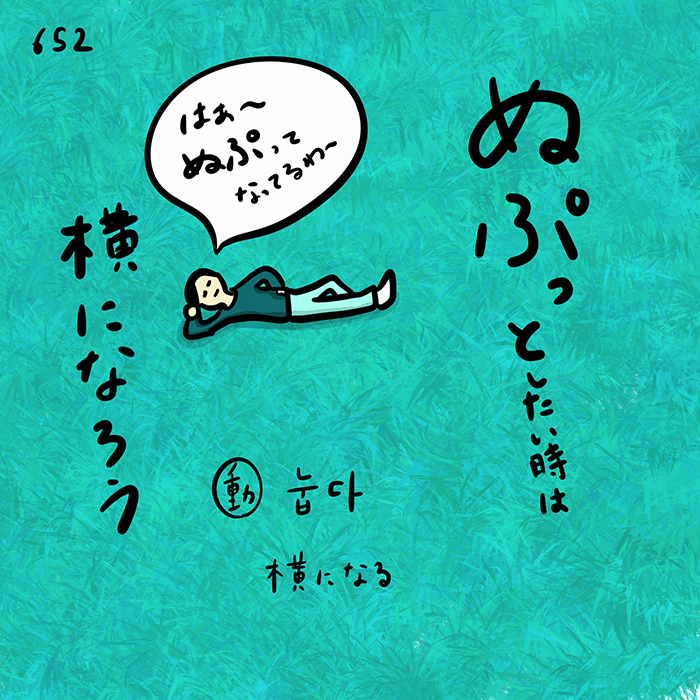 652
ぬぷっとしたい時は
はぁ〜
ぬぷって
なってるわ〜
横になろう
動 눕다
横になる